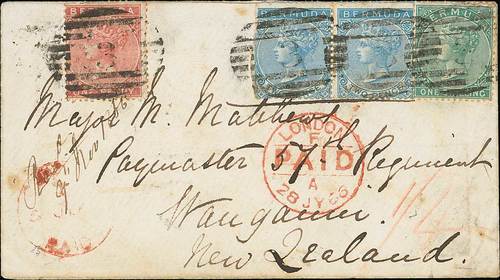 BERMUDA
BERMUDA
BERMUDA
BERMUDA
ONE SHILLING
Major M. Matthews
Paymaster 57th Regiment
Wanganui.
New Zealand.
LONDON
F
PAID
A
28 JY 66
PAID
1/4